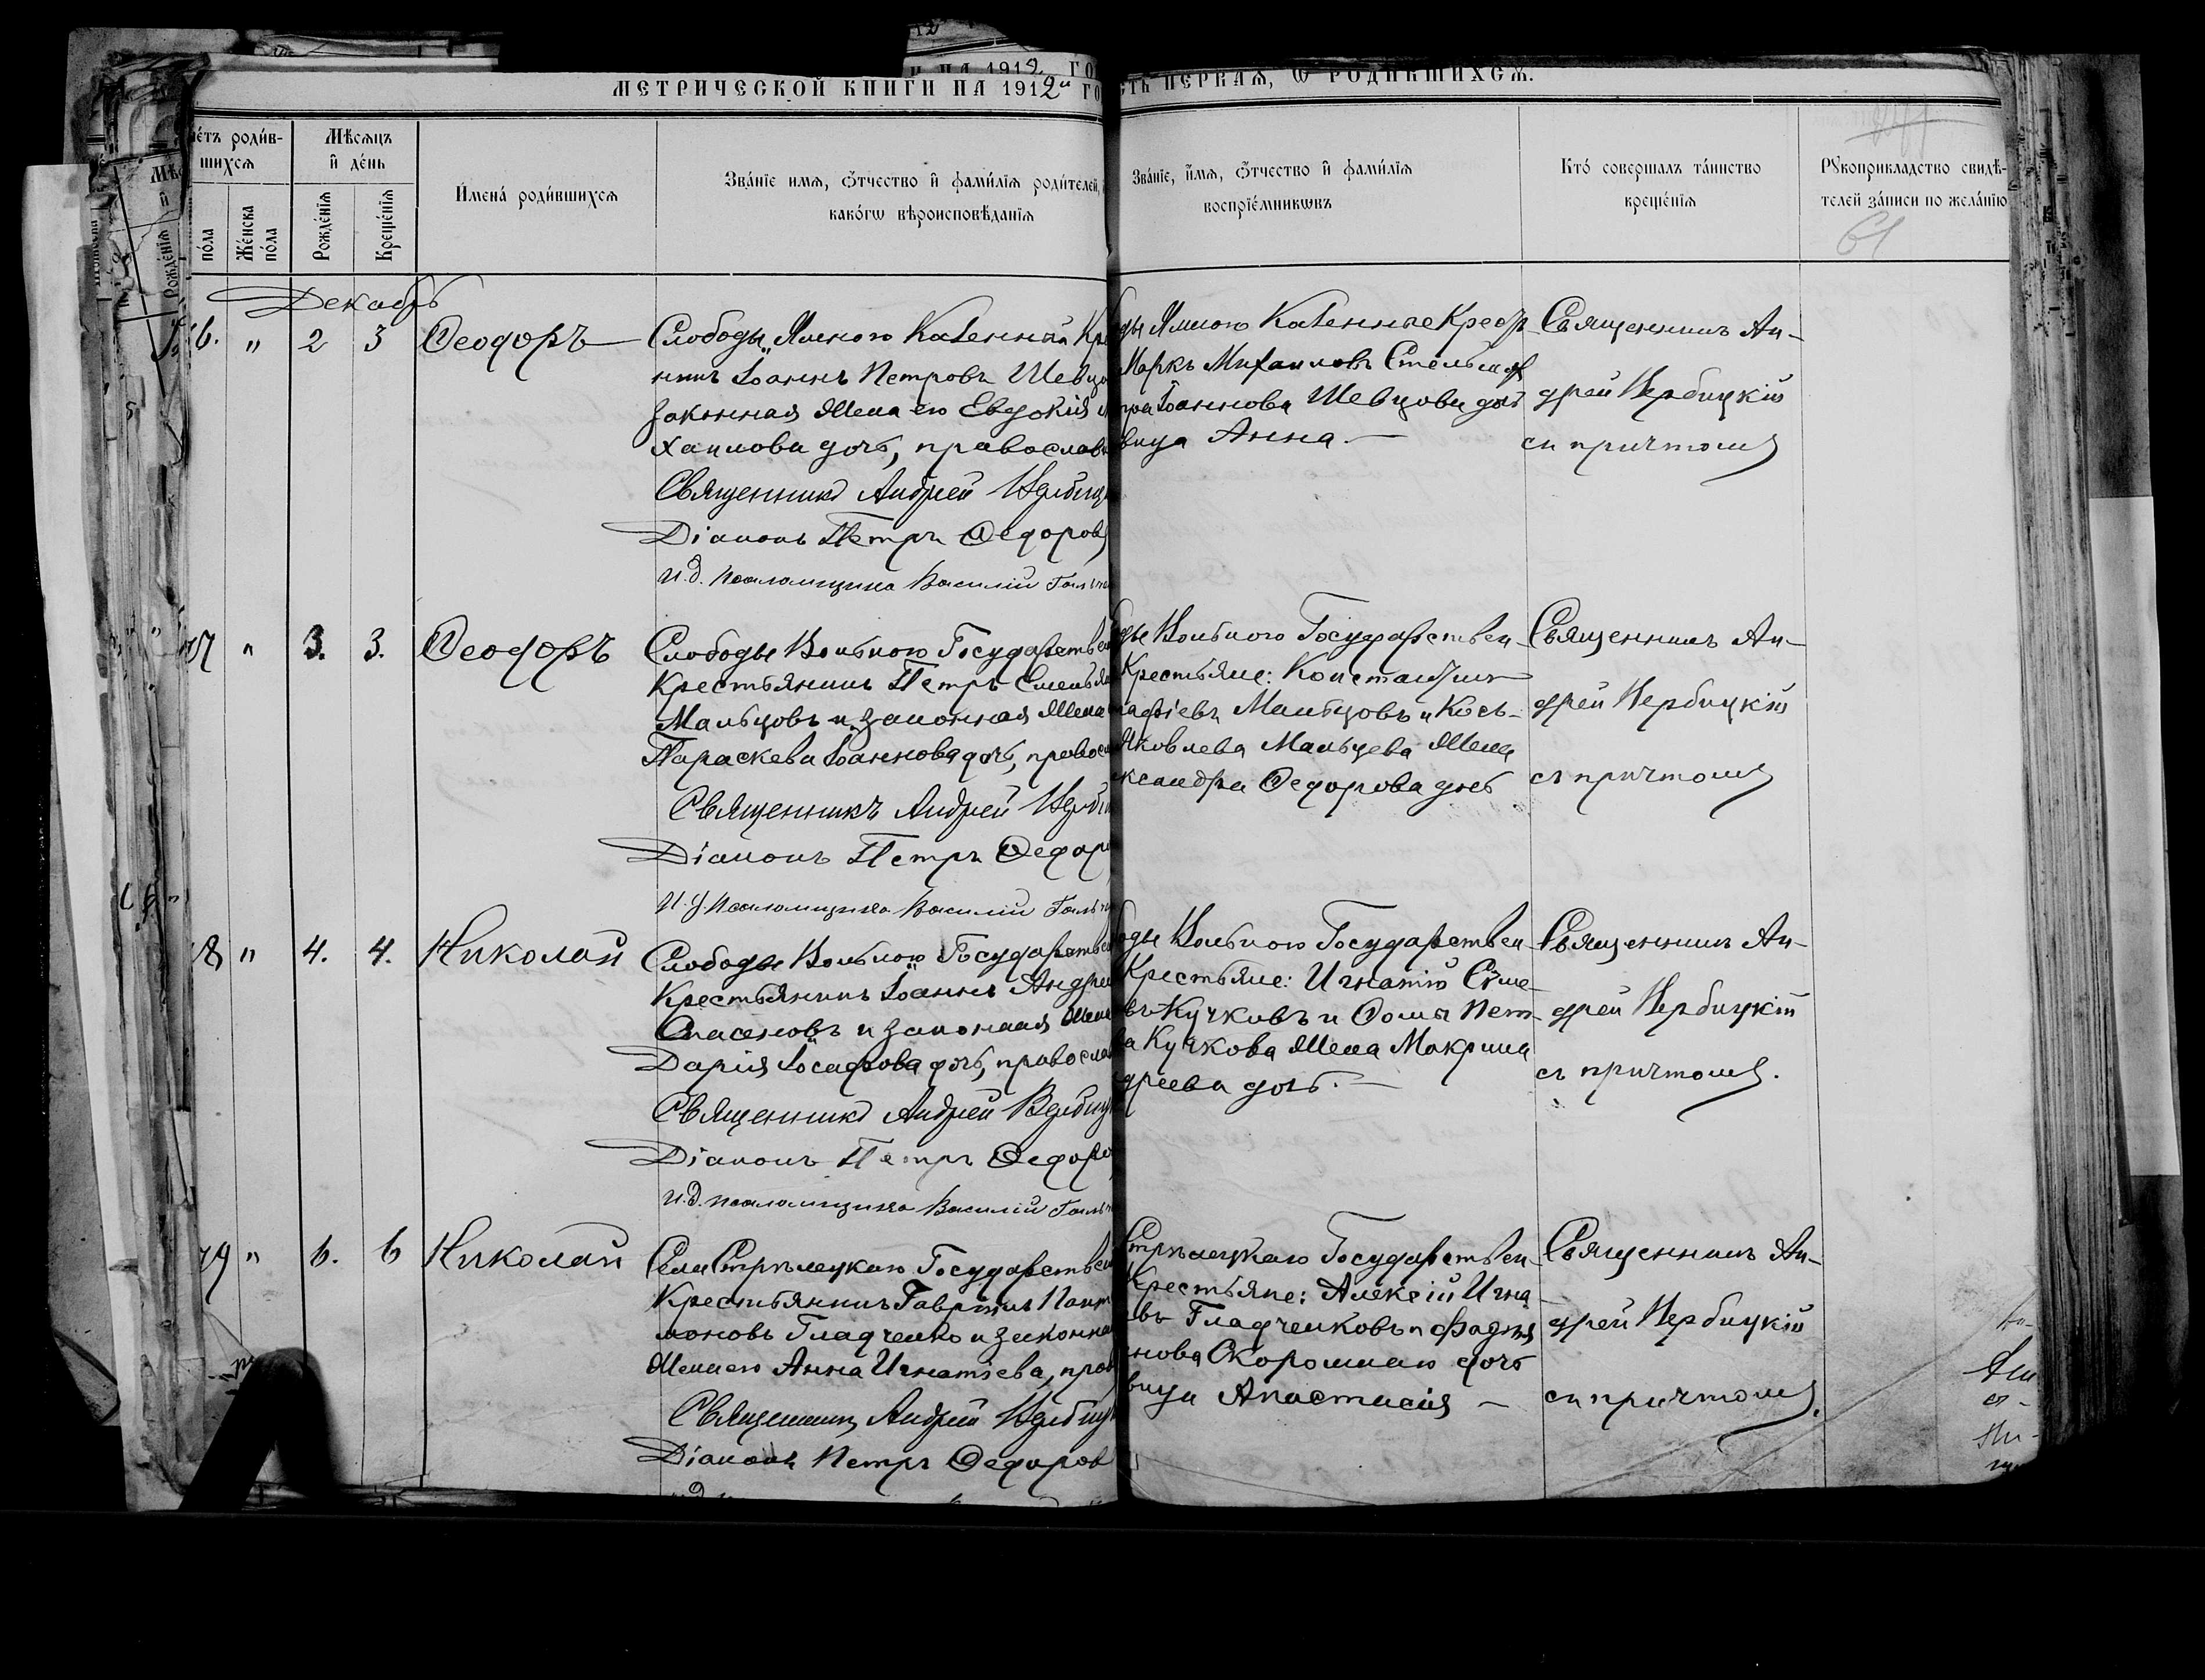 МЕТРИЧЕСКОЙ КНИГИ НА 1912й ГО
СТЬ ПЕРВАЯ, Ѡ РОДИВШИХСѦ.
НА 1912 ГО
ме́тъ роди́в-
шихсѧ
по́ла
Же́нска
по́ла
Мѣсѧцъ
и҆ де́нь
Рожде́нїѧ
Креще́нїѧ
И҆мена́ роди́вшихсѧ
Зва́нїе имѧ, ѻ҆́тчество и҆ фамі́лїѧ роди́телей,
како́гѡ вѣроисповѣ́данїѧ
Зва́нїе, и҆́мѧ, ѻ҆́тчество и҆ фамі́лїѧ
воспрїе́мникѡвъ
Кто́ соверша́лъ та́инство
креще́нїѧ
Рꙋкоприкладство свидѣ́-
телей за́писи по жела́нїю
61
Декабрь
6. " 2 3 Ѳеодоръ
Слободы Ямного Казенный Кре
нинъ Іоаннъ Петровъ Шевцо
законная жена его Евдокія Ми
хаилова дочь, православ
Священникъ Андрей Вербиц
Діаконъ Петръ Ѳедоровъ
и.д. псаломщика Василій Галь
ды Ямного Казенные Крест
Маркъ Михаиловъ Стельмах
Іоаннова Шевцова доч
вица Анна.
Священникъ Ан-
дрей Вербицкій
съ причтомъ
77 " 3. 3. Ѳеодоръ
Слободы Вольного Государствен
Крестьянинъ Петръ Емелья
Мальцовъ и законная жена
Параскева Іоаннова дочь, правосл
Священникъ Андрей Верби
Діаконъ Петръ Ѳедор
И.д. псаломщика Василій Галь
ды Вольного Государствен-
Крестьяне: Константинъ
афіевъ Мальцовъ и Кось-
Яковлева Мальцева жена
ксандра Ѳедорова дочь
Священникъ Ан-
дрей Вербицкій
съ причтомъ
8 " 4. 4. Николай
Слободы Вольного Государствен
Крестьянинъ Іоаннъ Андрее
Спасеновъ и законная жена
Дарія Іосафова дочь, правосла
Священникъ Андрей Вербиц
Діаконъ Петръ Ѳедоро
и.д. псаломщика Василій Галь
оды Вольного Государствен-
Крестьяне: Игнатій Симе-
въ Кучковъ и Ѳома Пет-
ва Кучкова жена Макрина
дреева дочь.
Священникъ Ан-
дрей Вербицкій
съ причтомъ.
79 " 6. 6 Николай
Села Стрѣлецкаго Государствен
Крестьянинъ Гавріилъ Пант
моновъ Гладченко и законна
жена его Анна Игнатіева, прав
Священникъ Андрей Вербиц
Діаконъ Петръ Ѳедоров
Стрѣлецкаго Государствен-
Крестьяне: Алексій Игна
евъ Гладченковъ и
нова Скорошнаго дочь
вица Анастасія
Священникъ Ан-
дрей Вербицкій
съ причтомъ.